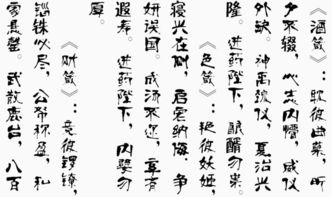 《酒箴》：耽彼曲蘖，昕
夕不辍，心志内懵，威仪
外缺。神禹疏仪，夏治兴
隆。进药陛下，醲醑勿崇。
《色箴》：艳彼妖姬，
寝兴在侧，启宠纳侮，争
妍误国。成汤不迩，享有
遐寿。进药陛下，内嬖勿
厚。
《财箴》：竞彼镠镣，
锱铢必尽，公帑称盈，私
家悬罄。武散鹿台，八百